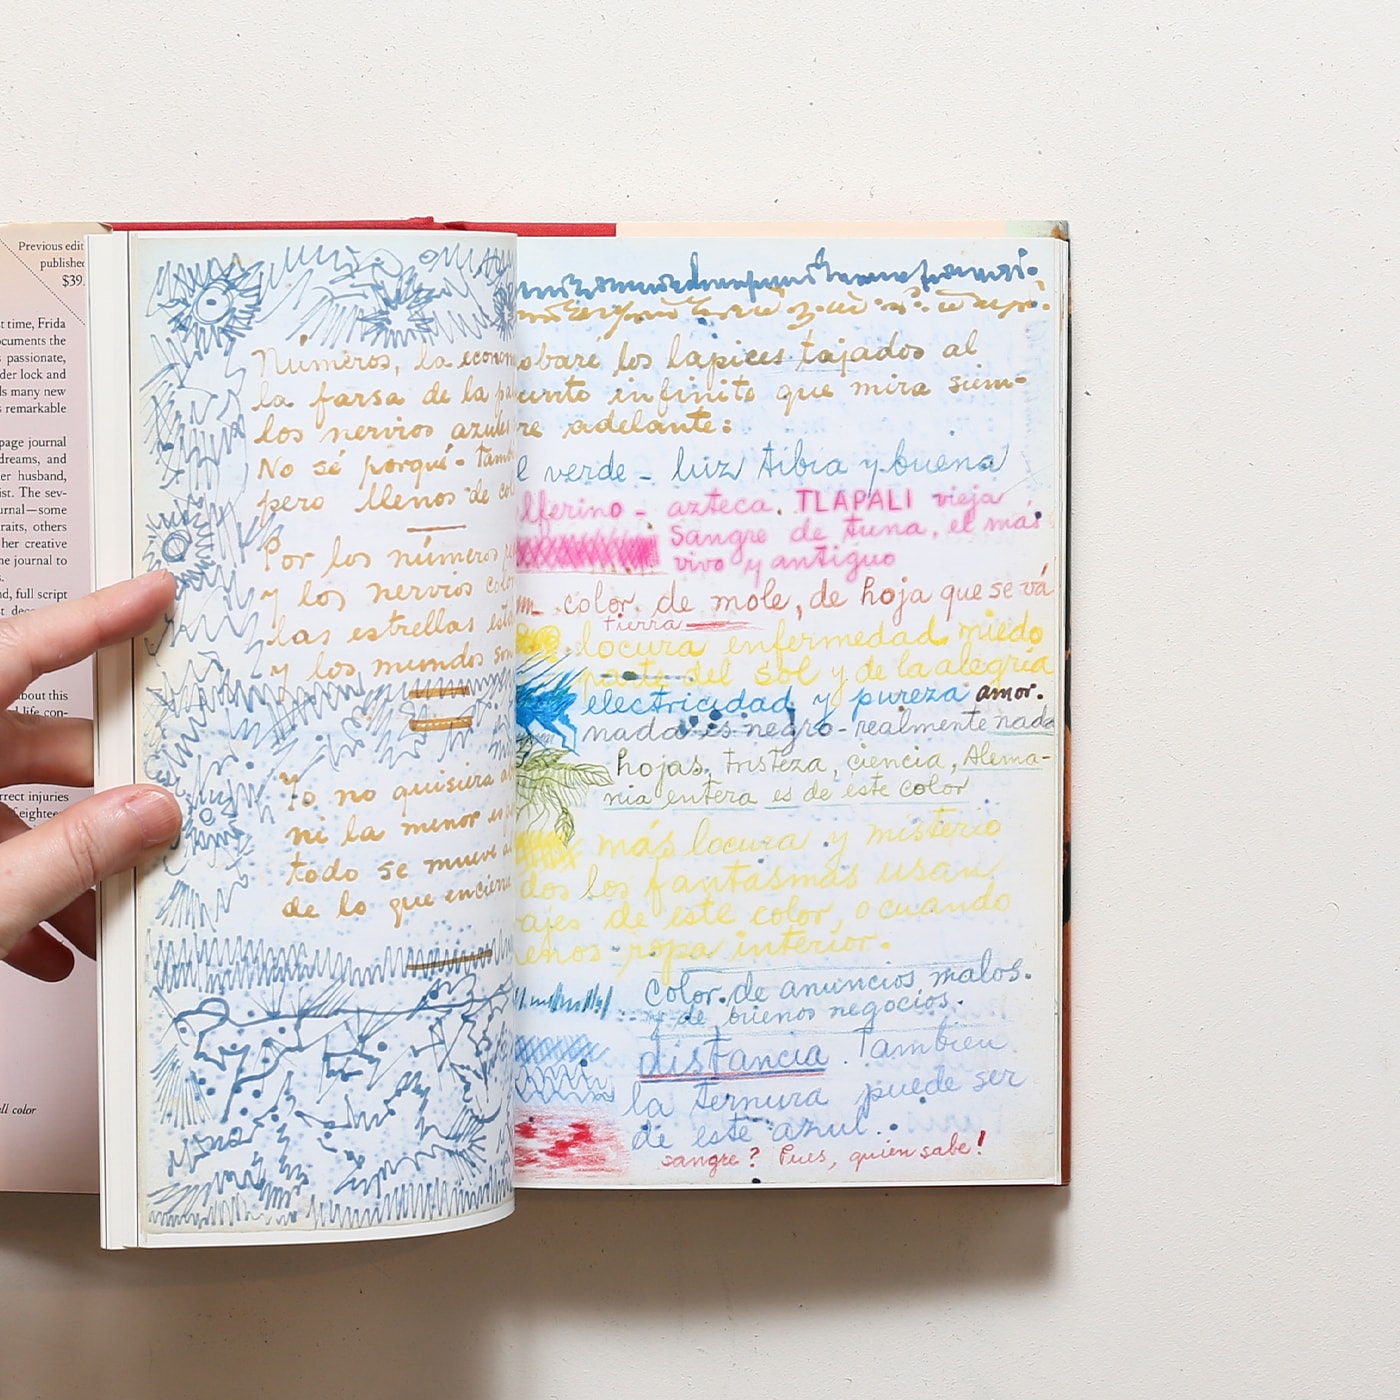 Previous edit
published
$39.
t time, Frida
ocuments the
s passionate,
der lock and
ls many new
s remarkable
page journal
dreams, and
er husband,
ist. The sev-
urnal—some
raits, others
her creative
he journal to
s.
nd, full script
t dec
about this
l life con-
rrect injuries
f eighteen
ll color
Números, la econom
la farsa de la pa
los nervios azules
No sé porqué - tamb
pero llenos de co
Por los números
y los nervios colo
las estrellas está
y los mundos son
Yo no quisiera ab
ni la menor es
todo se mueve al
de lo que encierra
obaré los lapices tajados al
unto infinito que mira siem-
re adelante:
l verde - luz tibia y buena
lferino - azteca. TLAPALI vieja
Sangre de tuna, el más
vivo y antiguo
color de mole, de hoja que se vá
tierra
locura enfermedad miedo
parte del sol y de la alegria
electricidad y pureza amor.
nada es negro - realmente nada
hojas, tristeza, ciencia, Alema-
nia entera es de éste color
más locura y misterio
dos los fantasmas usan
ajes de este color, o cuando
enos ropa interior.
color de anuncios malos.
y de buenos negocios.
distancia. Tambien
la ternura puede ser
de este azul.
sangre? Pues, quien sabe!